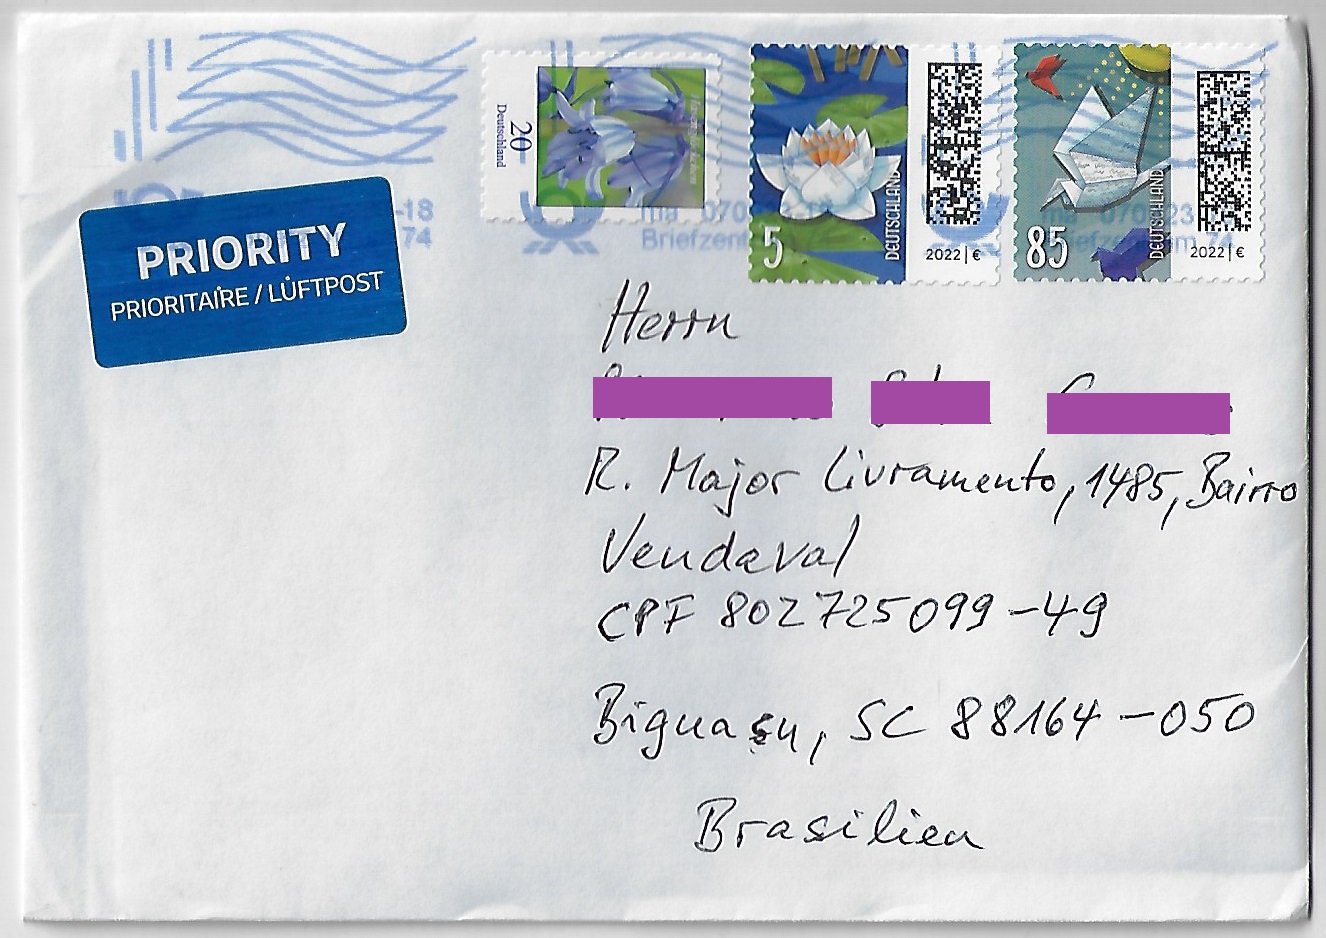 20
Deutschland
5
DEUTSCHLAND
2022 | €
85
DEUTSCHLAND
2022 | €
-18
74
PRIORITY
PRIORITAIRE / LUFTPOST
Herrn
R. Major Livramento, 1485, Bairro
Vendaval
CPF 802725099-49
Biguaçu, SC 88164-050
Brasilien